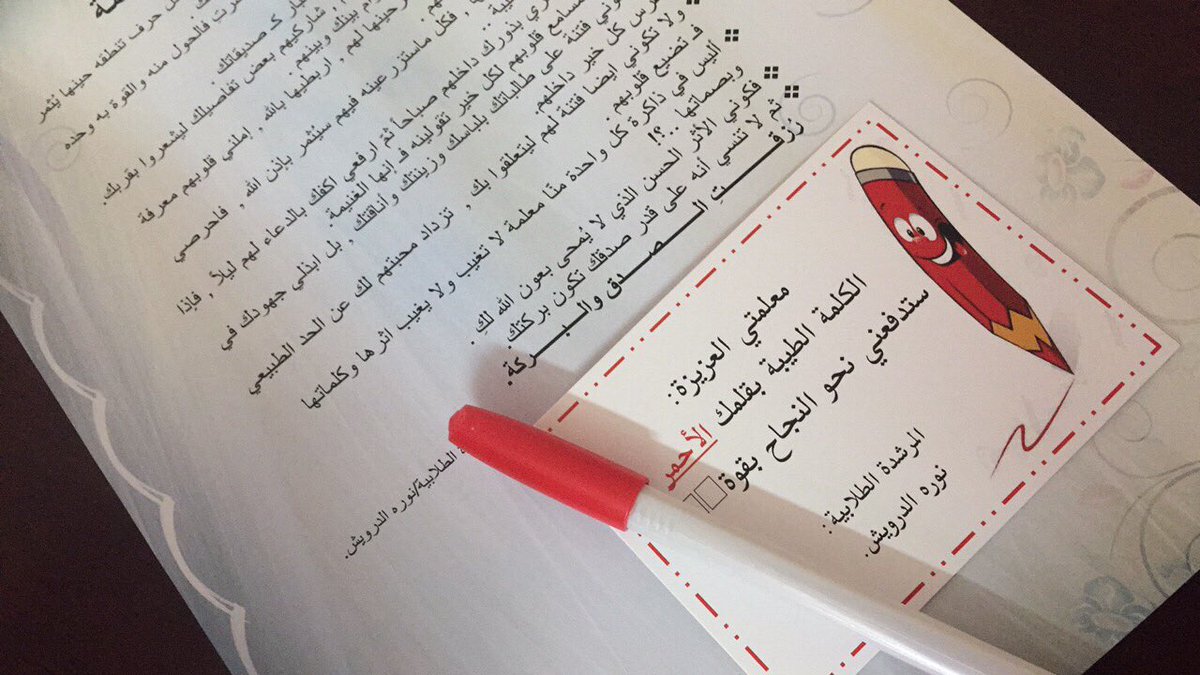 حرف تنطقه حينها يُثمر
فالحول منه والقوة به وحده
ك صديقاتك .
شاركيهم بعض تفاصيلك ليشعروا بقربك.
بينك وبينهم
لهم , اربطيها بالله , إملئي قلوبهم معرفة
, فكل ماستزرعينه فيهم سيثمر بإذن الله , فاحرصي
بذورك داخلهم صباحاً ثم ارفعي اكفك بالدعاء لهم ليلاً , فإذا
قلوبهم لكل خير تقولينه فـ إنها الغنيمة.
فتنة على طالباتك بلباسك وزينتك وأناقتك , بل ابذلي جهودك في
كل خير داخلهم
ولا تكوني ايضا فتنة لهم ليتعلقوا بك , تزداد محبتهم لك عن الحد الطبيعي
فتضيع قلوبهم
أليس في ذاكرة كل واحدة منّا معلمة لا تغيب ولا يغيب اثرها وكلماتها
وبصماتها ..؟!
فكوني الأثر الحسن الذي لا يُمحى بعون الله لكِ .
ثم لا تنسي أنه على قدر صدقك تكون بركتك.
رزقت الصدق والبركة.
الطلابية/نوره الدرويش.
معلمتي العزيزة:
الكلمة الطيبة بقلمك الأحمر
ستدفعني نحو النجاح بقوة
المرشدة الطلابية:
نوره الدرويش.